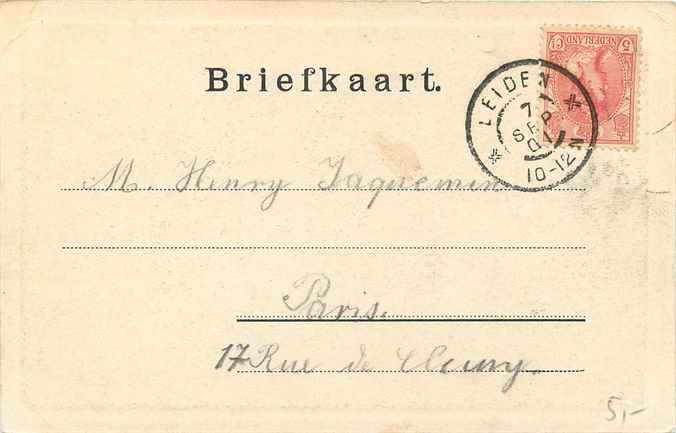 5 Ct NEDERLAND
Briefkaart.
LEIDEN
7
SEP
01
10-12 N
M. Henry Jaquemin
Paris.
17 Rue de Cluny.
5,-